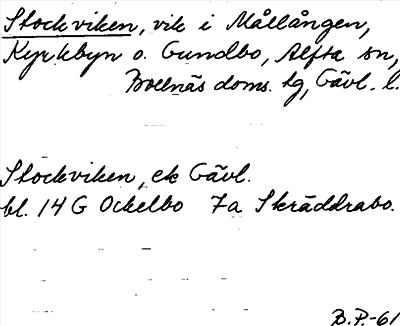 Stockviken, vik i Mållången,
Kyrkbyn o. Gundbo, Alfta sn,
Bollnäs doms. tg, Gävl. l.
Stockviken, ek Gävl.
bl. 14 G Ockelbo 7a Skräddrabo.
B.P.-61